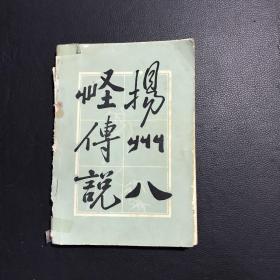 揚州八
怪傳說